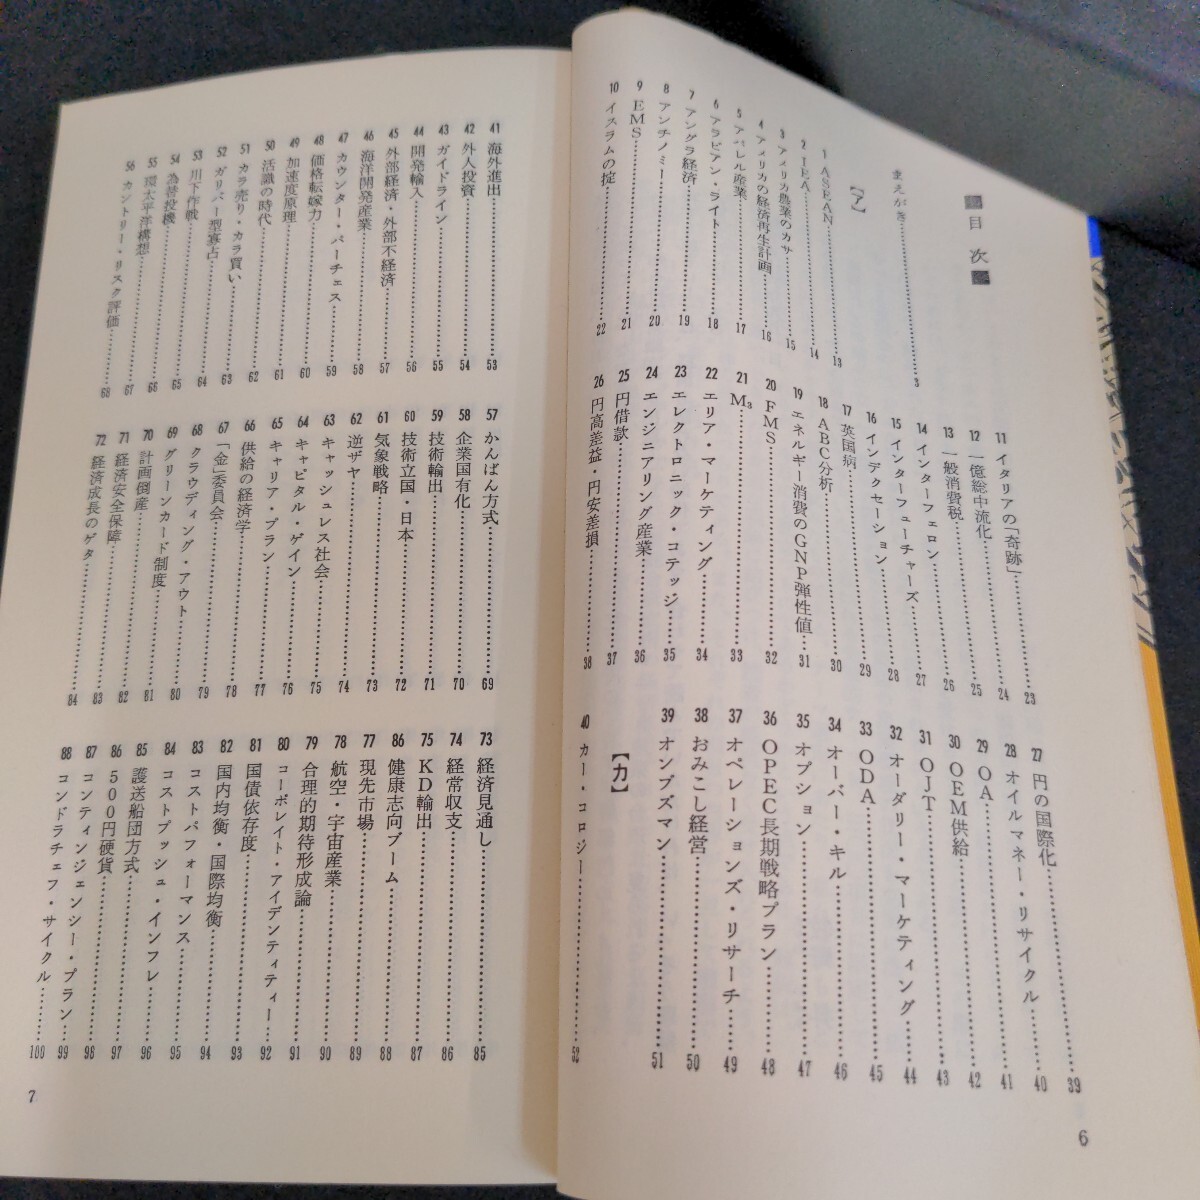 目次
まえがき……………3
【ア】
1 ASEAN……………13
2 IEA……………14
3 アメリカ農業のカサ……………15
4 アメリカの経済再生計画……………16
5 アパレル産業……………17
6 アラビアン・ライト……………18
7 アングラ経済……………19
8 アンチノミー……………20
9 EMS……………21
10 イスラムの掟……………22
11 イタリアの「奇跡」……………23
12 一億総中流化……………24
13 一般消費税……………25
14 インターフェロン……………26
15 インターフューチャーズ……………27
16 インデクセーション……………28
17 英国病……………29
18 ABC分析……………30
19 エネルギー消費のGNP弾性値……………31
20 FMS……………32
21 M₃……………33
22 エリア・マーケティング……………34
23 エレクトロニック・コテッジ……………35
24 エンジニアリング産業……………36
25 円借款……………37
26 円高差益・円安差損……………38
27 円の国際化……………39
28 オイルマネー・リサイクル……………40
29 OA……………41
30 OEM供給……………42
31 OJT……………43
32 オーダリー・マーケティング……………44
33 ODA……………45
34 オーバー・キル……………46
35 オプション……………47
36 OPEC長期戦略プラン……………48
37 オペレーションズ・リサーチ……………49
38 おみこし経営……………50
39 オンブズマン……………51
【カ】
40 カー・コロジー……………52
6
41 海外進出……………53
42 外人投資……………54
43 ガイドライン……………55
44 開発輸入……………56
45 外部経済・外部不経済……………57
46 海洋開発産業……………58
47 カウンター・パーチェス……………59
48 価格転嫁力……………60
49 加速度原理……………61
50 活識の時代……………62
51 カラ売り・カラ買い……………63
52 ガリバー型寡占……………64
53 川下作戦……………65
54 為替投機……………66
55 環太平洋構想……………67
56 カントリー・リスク評価……………68
57 かんばん方式……………69
58 企業国有化……………70
59 技術輸出……………71
60 技術立国・日本……………72
61 気象戦略……………73
62 逆ザヤ……………74
63 キャッシュレス社会……………75
64 キャピタル・ゲイン……………76
65 キャリア・プラン……………77
66 供給の経済学……………78
67 「金」委員会……………79
68 クラウディング・アウト……………80
69 グリーンカード制度……………81
70 計画倒産……………82
71 経済安全保障……………83
72 経済成長のゲタ……………84
73 経済見通し……………85
74 経常収支……………86
75 KD輸出……………87
86 健康志向ブーム……………88
77 現先市場……………89
78 航空・宇宙産業……………90
79 合理的期待形成論……………91
80 コーポレイト・アイデンティティー……………92
81 国債依存度……………93
82 国内均衡・国際均衡……………94
83 コストパフォーマンス……………95
84 コストプッシュ・インフレ……………96
85 護送船団方式……………97
86 500円硬貨……………98
87 コンティンジェンシー・プラン……………99
88 コンドラチェフ・サイクル……………100
7